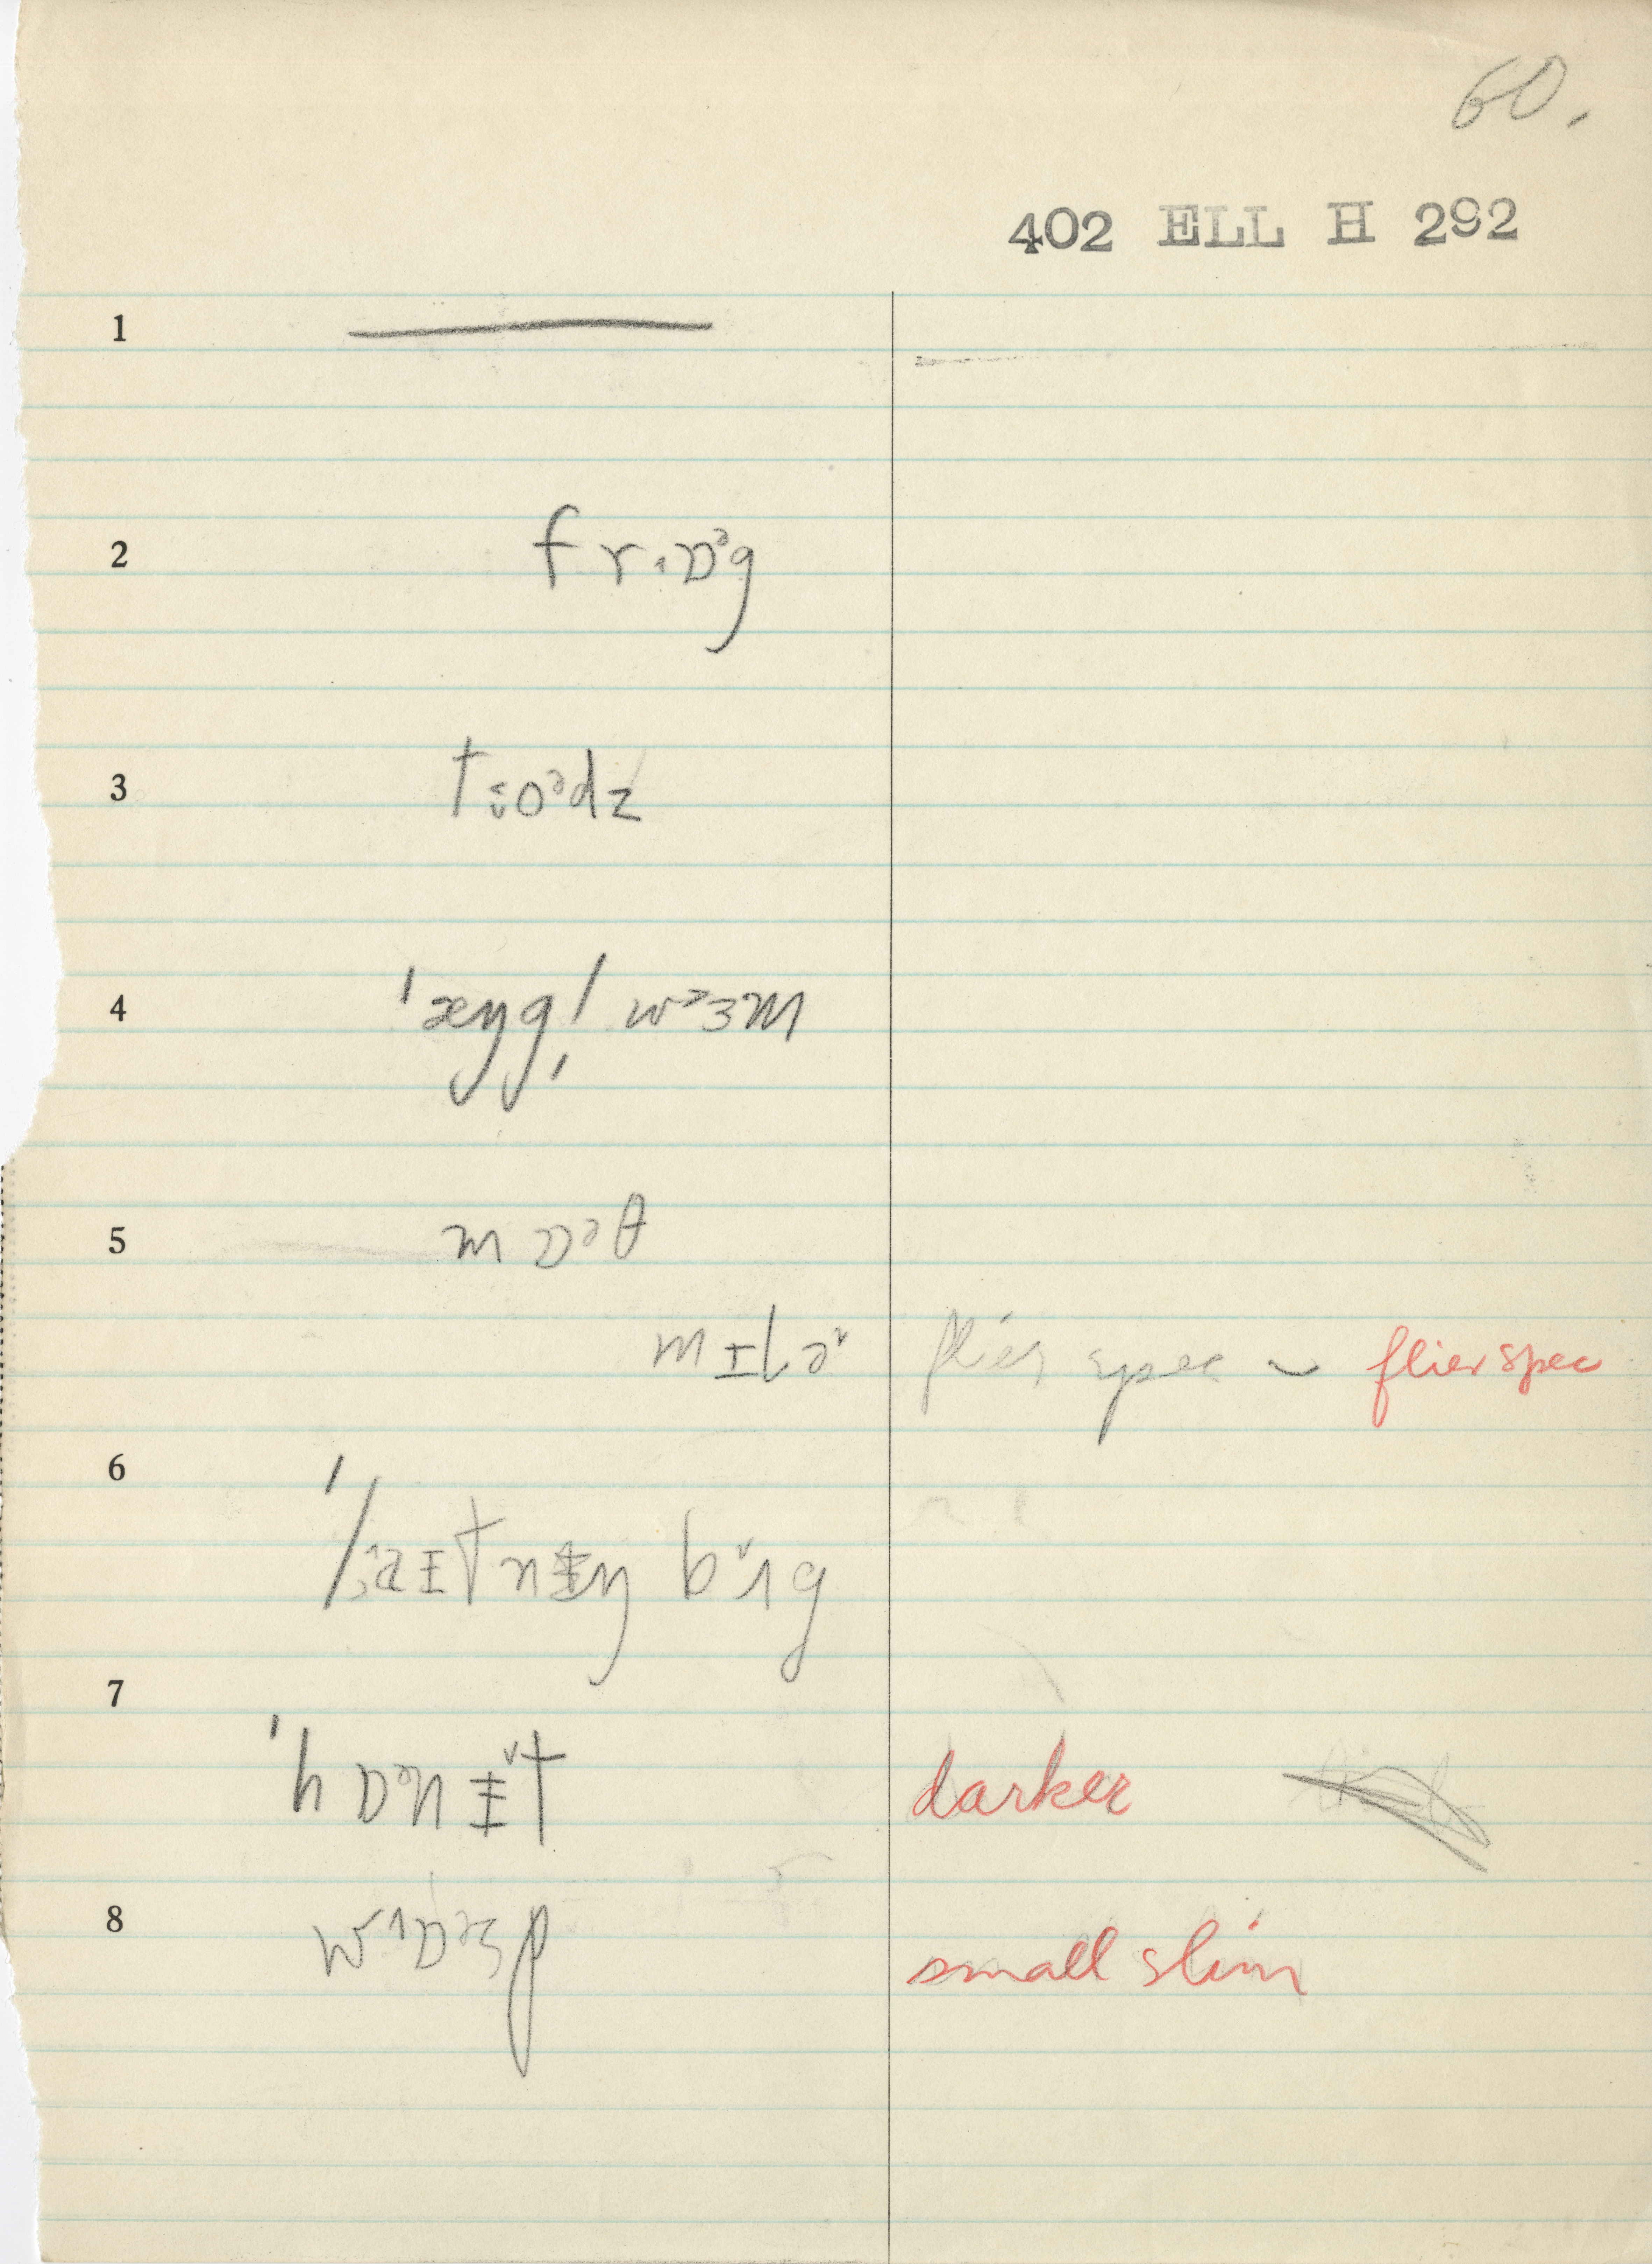 60.
402 ELL H 292
1 —
2 frˌɒᵊg
3 to̬ᵊdz
4 ˈæŋglˌ wᵊɜm
5 mɒᵊθ
mɪlɚ flier spec ~ flier spec
6
bʌg
7
ˈhɒᵊnɪt darker
8 wɒᵊsp small slim